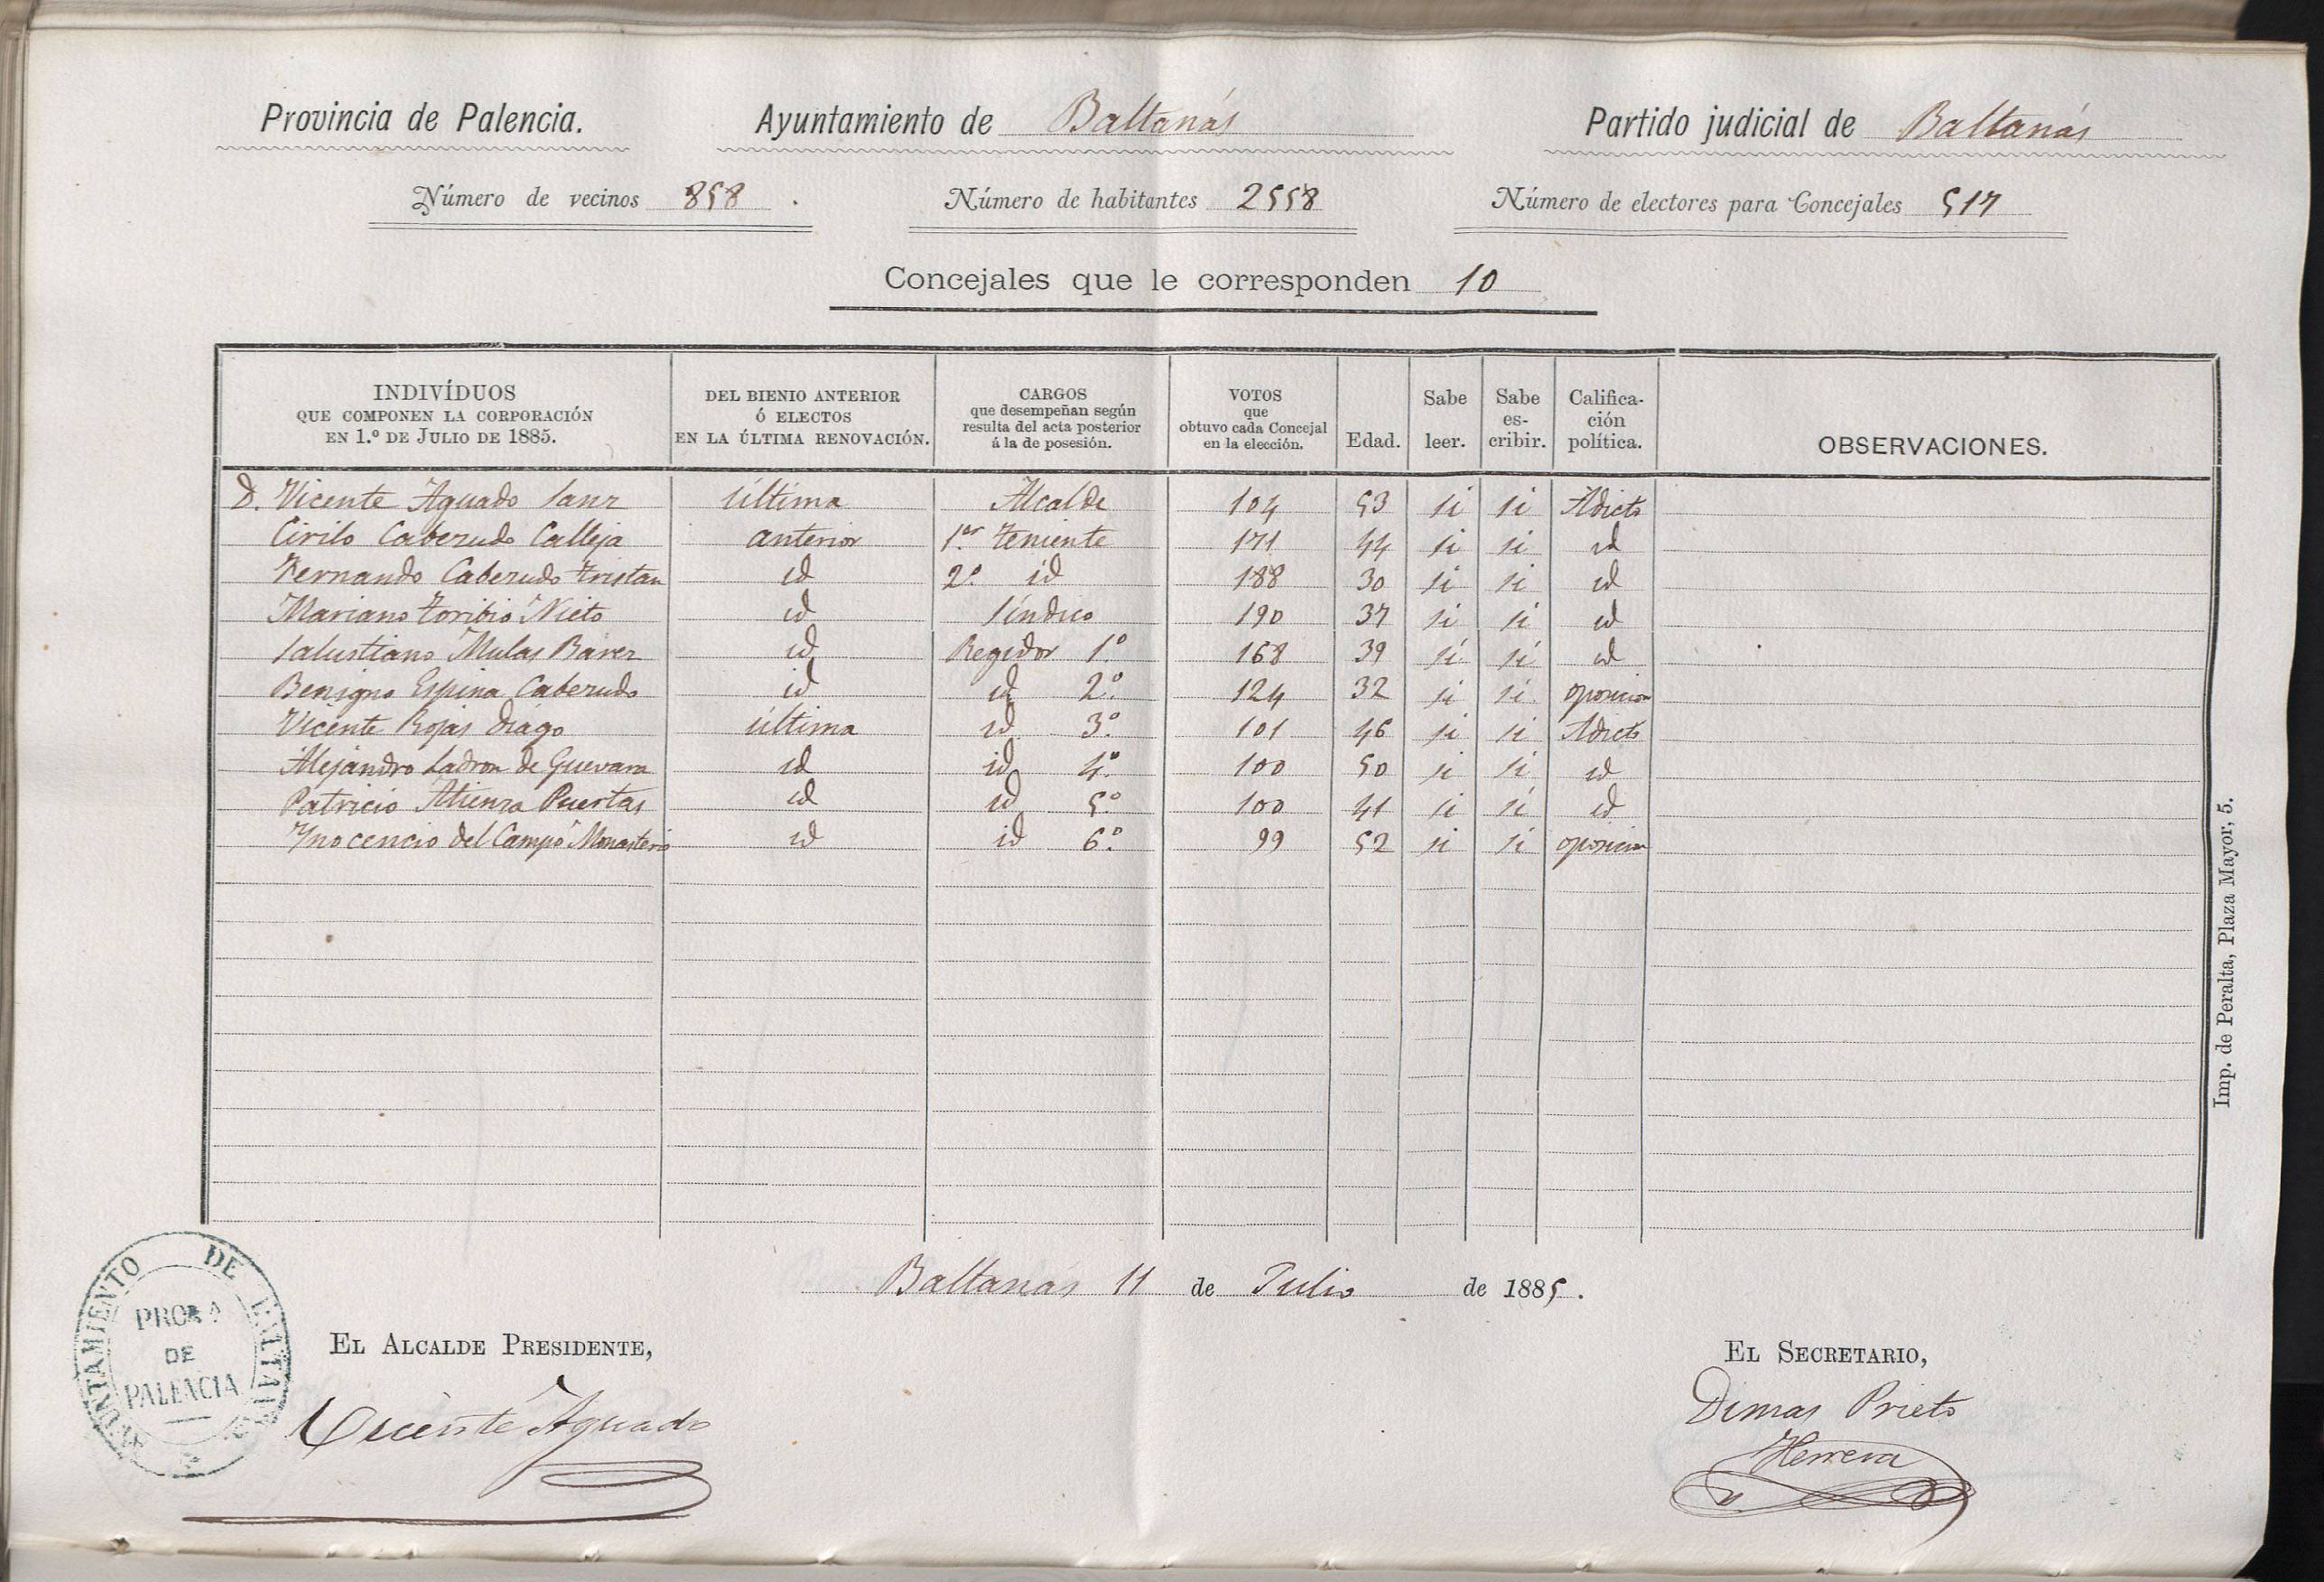 Provincia de Palencia. Ayuntamiento de Baltanás Partido judicial de Baltanás
Número de vecinos 858. Número de habitantes 2558 Número de electores para Concejales 517
Concejales que le corresponden 10
INDIVÍDUOS QUE COMPONEN LA CORPORACIÓN EN 1.º DE JULIO DE 1885. DEL BIENIO ANTERIOR Ó ELECTOS EN LA ÚLTIMA RENOVACIÓN. CARGOS que desempeñan según resulta del acta posterior á la de posesión. VOTOS que obtuvo cada Concejal en la elección. Edad. Sabe leer. Sabe es-cribir. Califica-ción política. OBSERVACIONES.
D. Vicente Aguado Sanz última Alcalde 104 53 si si Adicto
Cirilo Cabezudo Calleja anterior 1.er Teniente 171 44 si si id
Fernando Cabezudo Tristan id 2.º id 188 30 si si id
Mariano Toribio Nieto id Síndico 190 37 si si id
Salustiano Mulas id Regidor 1.º 168 39 sí sí id
Benigno Espina Cabezudo id id 2.º 124 32 si si oposicion
Vicente Rojas Diago última id 3.º 101 46 si si Adicto
Alejandro Ladron de Guevara id id 4.º 100 50 si si id
Patricio Atienza Puertas id id 5.º 100 41 si si id
Ynocencio del Campo Monasterio id id 6.º 99 52 si si oposicion
Imp. de Peralta, Plaza Mayor, 5.
Baltanás 11 de Julio de 1885.
AYUNTAMIENTO DE BALTANAS
PROV.A
DE
PALENCIA
EL ALCALDE PRESIDENTE,
Vicente Aguado
EL SECRETARIO,
Dimas Prieto
Herrera